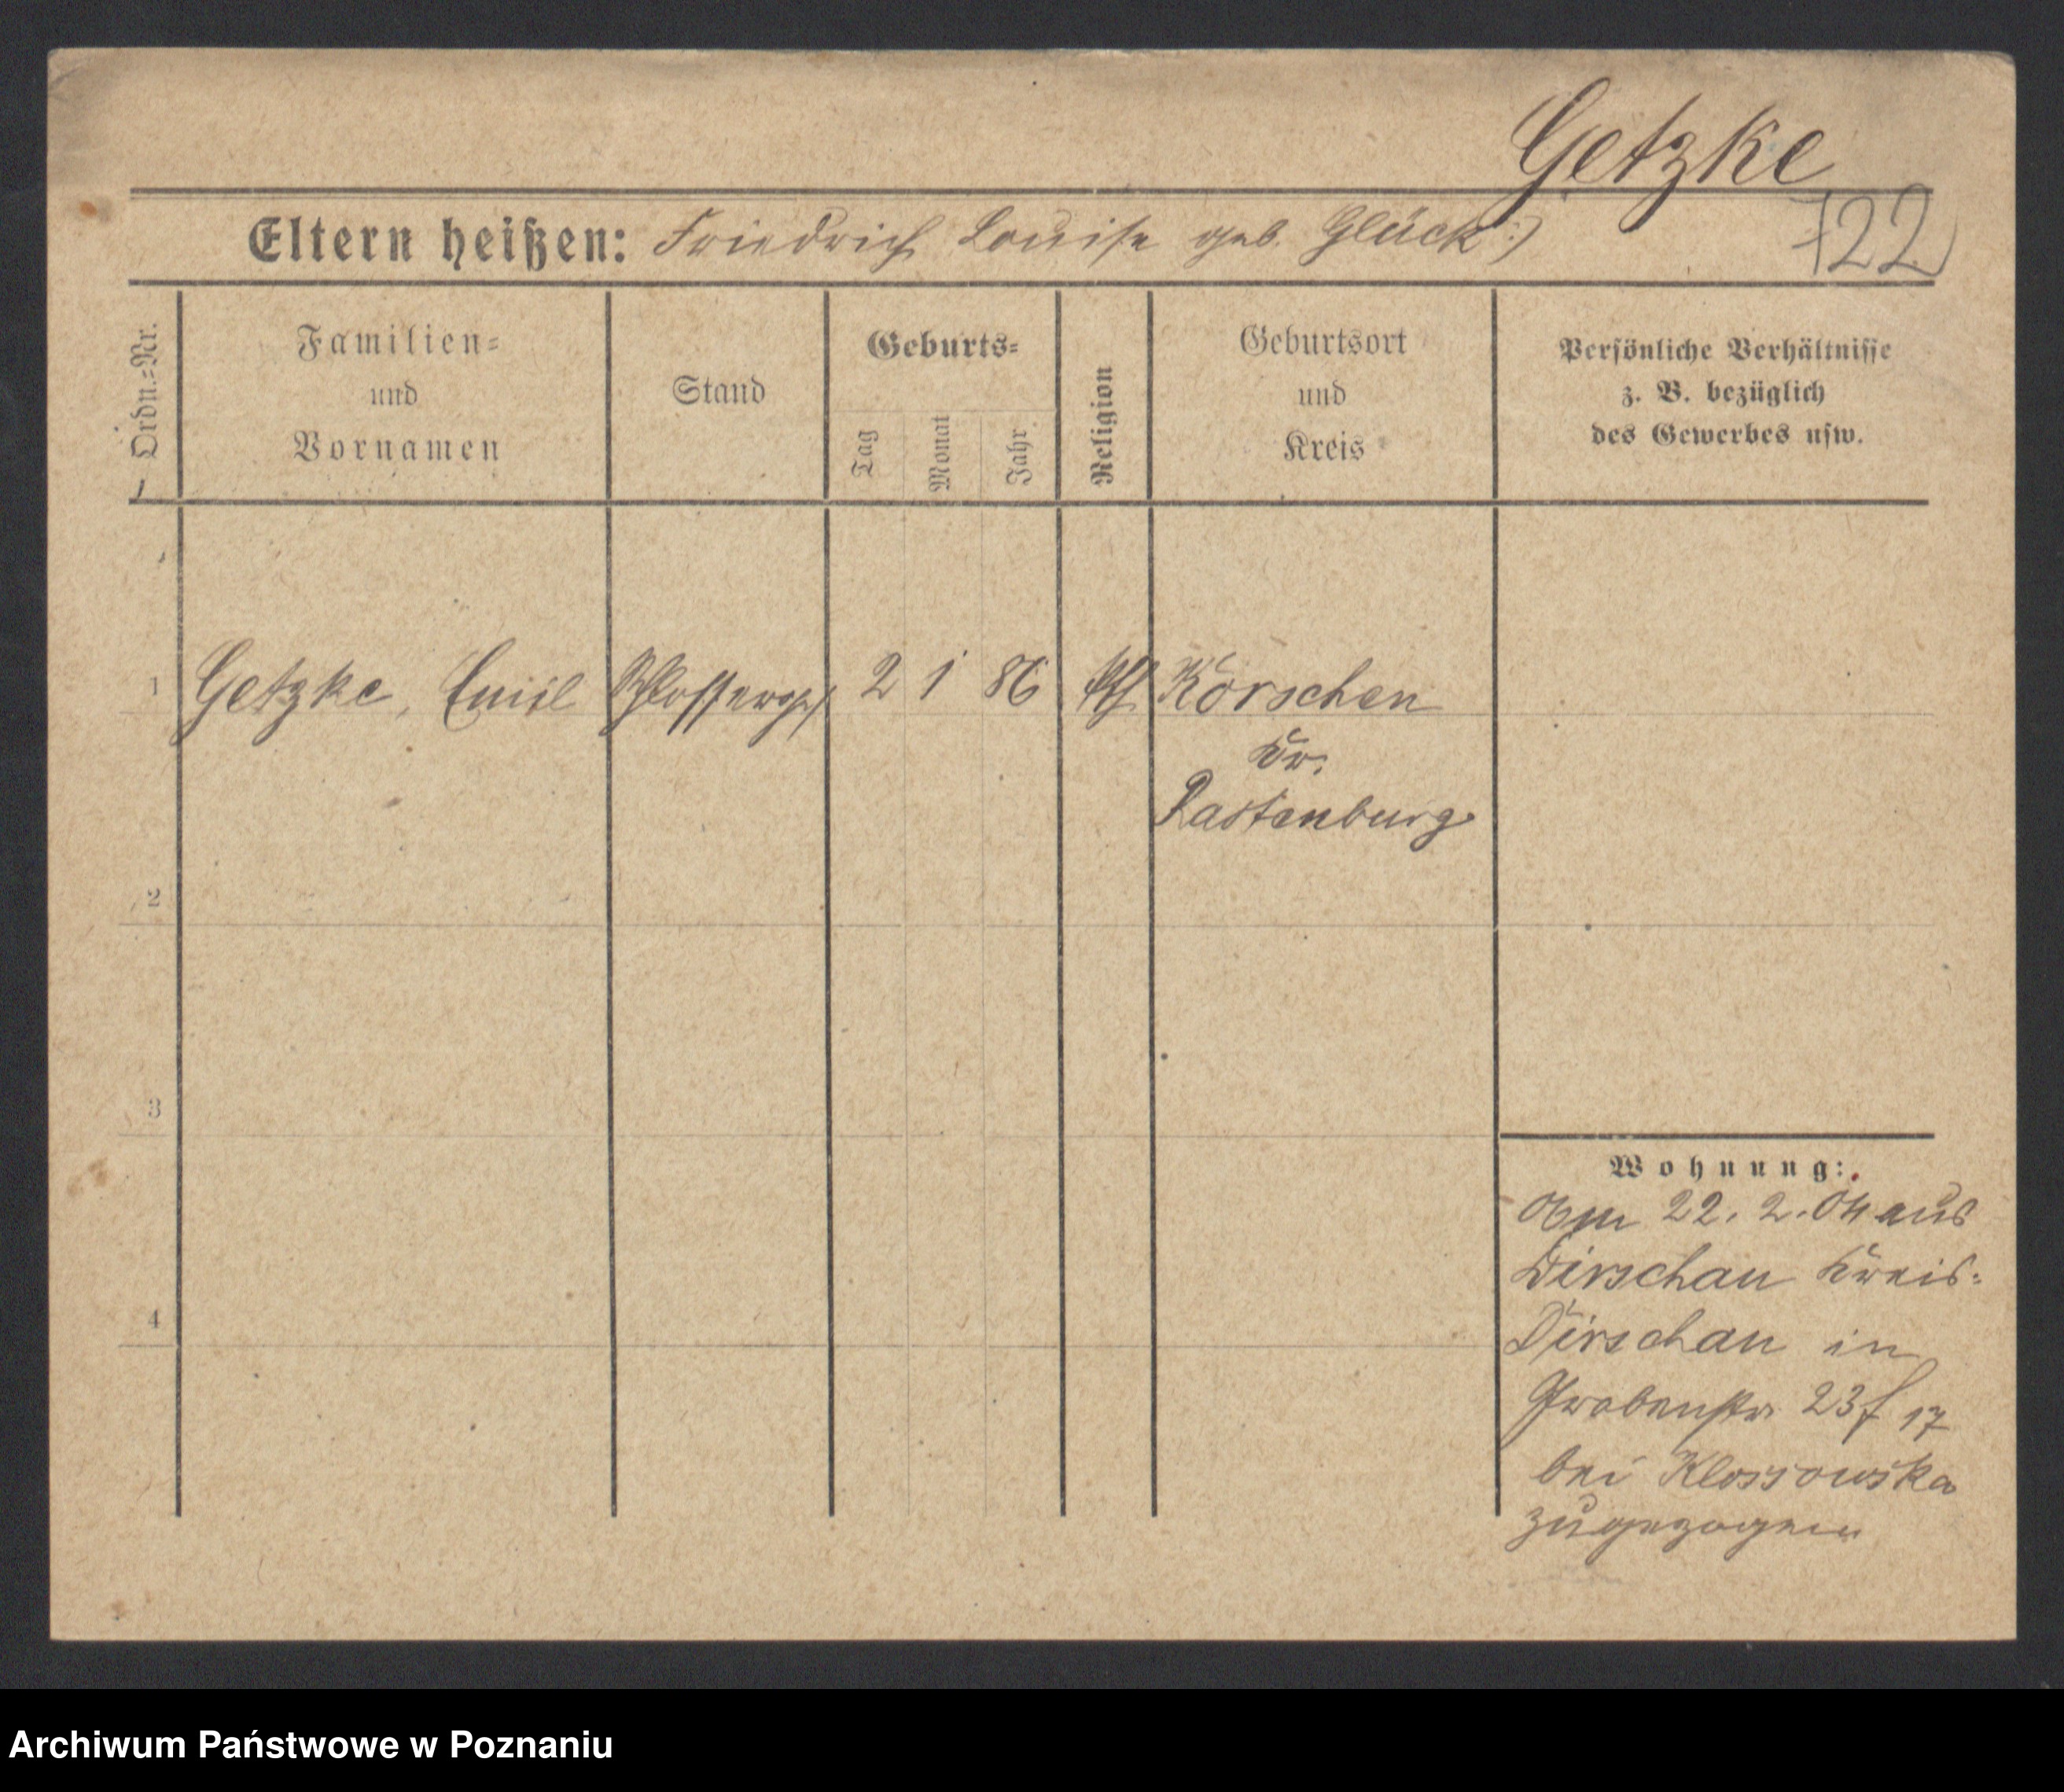 Getzke
Eltern heißen: Friedrich Louise geb. Glück :)
722
Ordn.=Nr.
Familien=
und
Vornamen
Stand
Geburts=
Tag
Monat
Jahr
Religion
Geburtsort
und
Kreis
Persönliche Verhältnisse
z. B. bezüglich
des Gewerbes usw.
1 Getzke, Emil Schlosserges 2 1 86 Korschen
Kr.
Rastenburg
2
3
4
Wohnung:
Am 22. 2. 04 aus
Dirschau Kreis=
Dirschau in
Grabenstr. 23 f 17
bei Klossowska
zugezogen
Archiwum Państwowe w Poznaniu